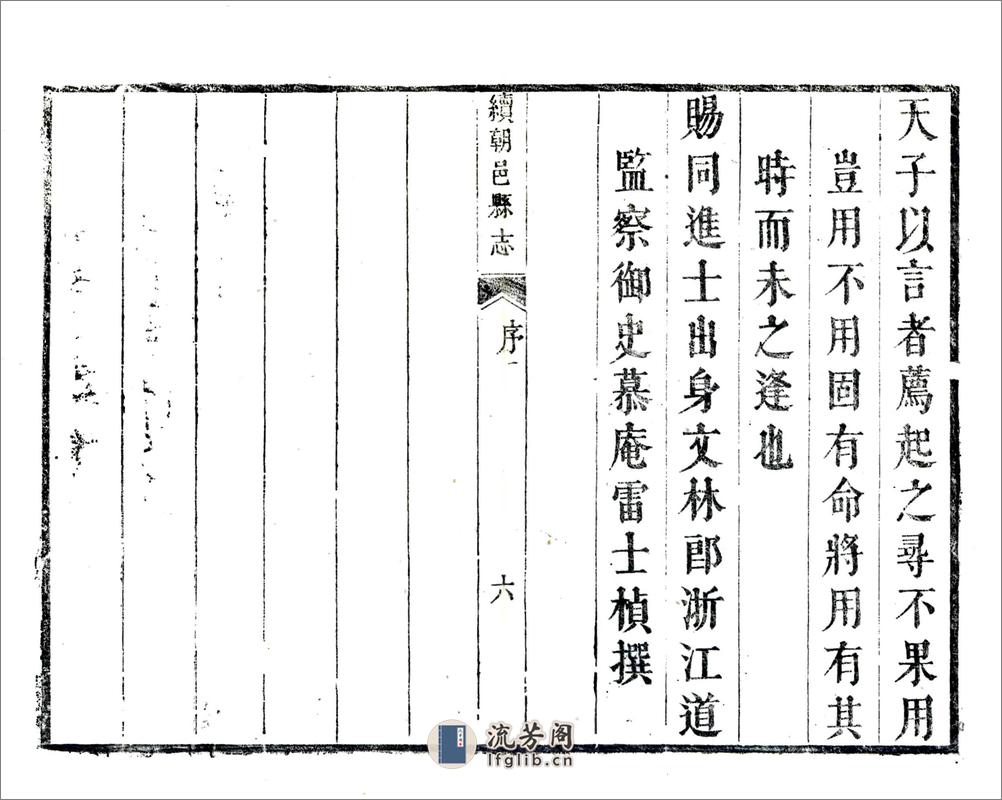 天子以言者薦起之尋不果用
豈用不用固有命將用有其
時而未之逢也
賜同進士出身文林郎浙江道
監察御史慕庵雷士楨撰
續朝邑縣志
序
六
流芳阁
lfglib.cn